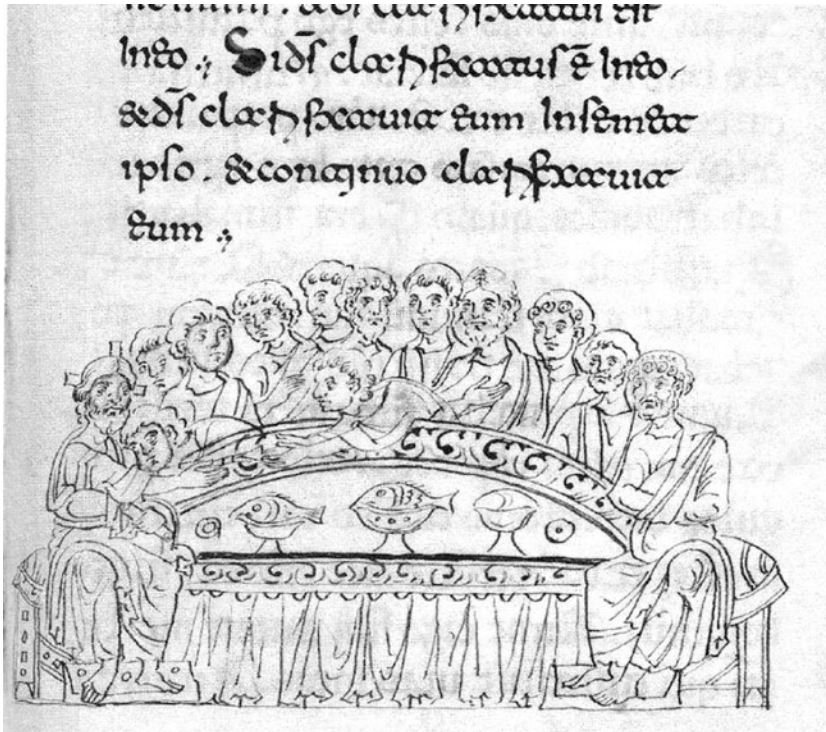 In eo .; Si ds̄ clarificatus ē In eo.
& ds̄ clarificauit eum In semet
ipso. & continuo clarificauit
eum .;